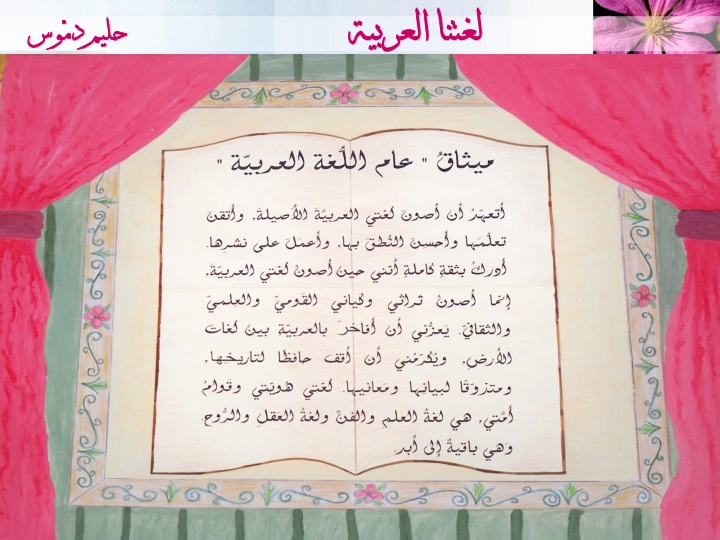 لغتنا العربية
حليم دموس
ميثاقُ " عام اللُّغة العربيّة "
أتعهّدُ أن أصونَ لغتي العربيَّةَ الأصيلةَ، وأتقنَ
تعلّمَها وأُحسنَ النُطقَ بها، وأعملَ على نشرِها.
أُدركُ بثقةٍ كاملةٍ أنني حينَ أصونُ لغتي العربيّةَ،
إنما أصونُ تراثي وكياني القوميّ والعلميّ
والثقافيّ. يَعزُّني أن أُفاخرَ بالعربيّةِ بين لغاتِ
الأرضِ، ويُكرّمُني أن أقفَ حافظًا لتاريخِها،
ومتذوّقًا لبيانِها ومَعانيها. لغتي هُويّتي وقَوامُ
أُمّتي، هي لغةُ العلمِ والفنِّ ولغةُ العقلِ والرُّوحِ
وَهي باقيةٌ إلى أبد.